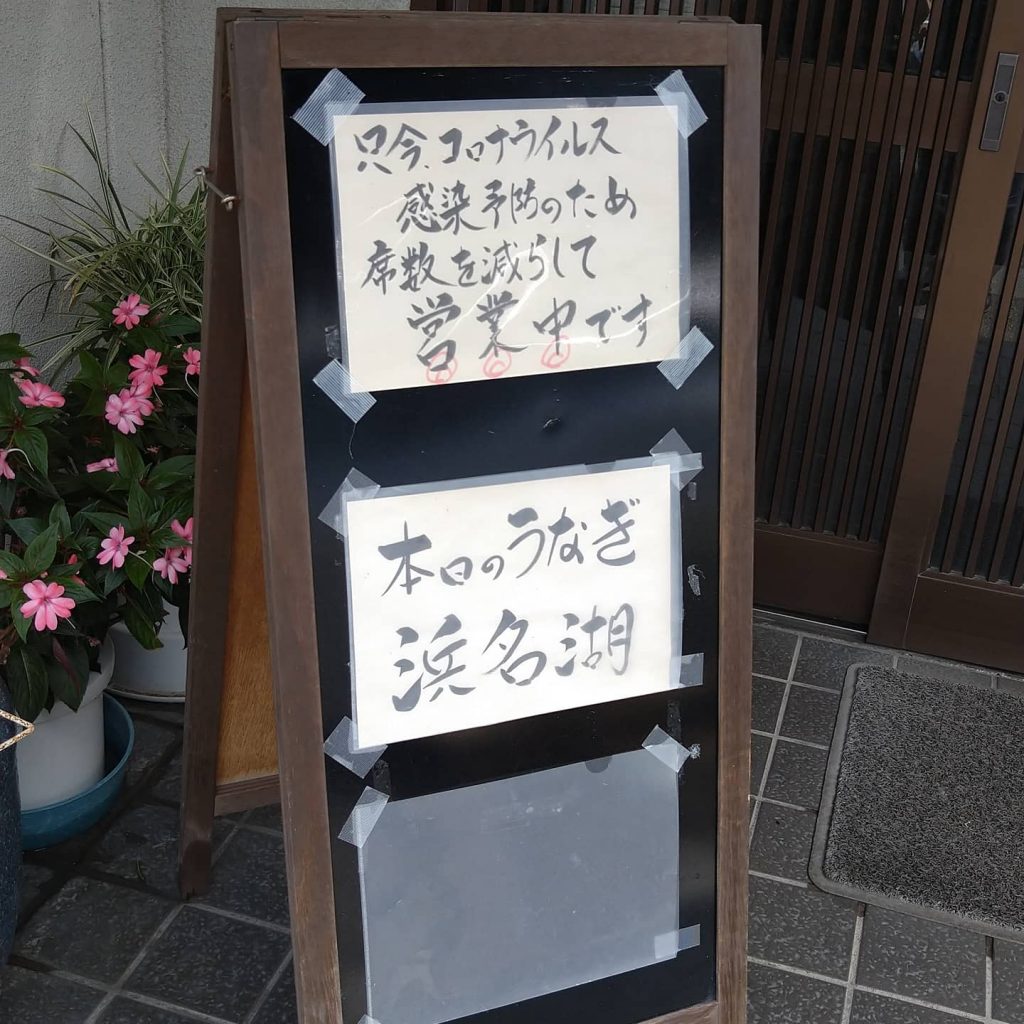 只今、コロナウイルス
感染予防のため
席数を減らして
営業中です
本日のうなぎ
浜名湖